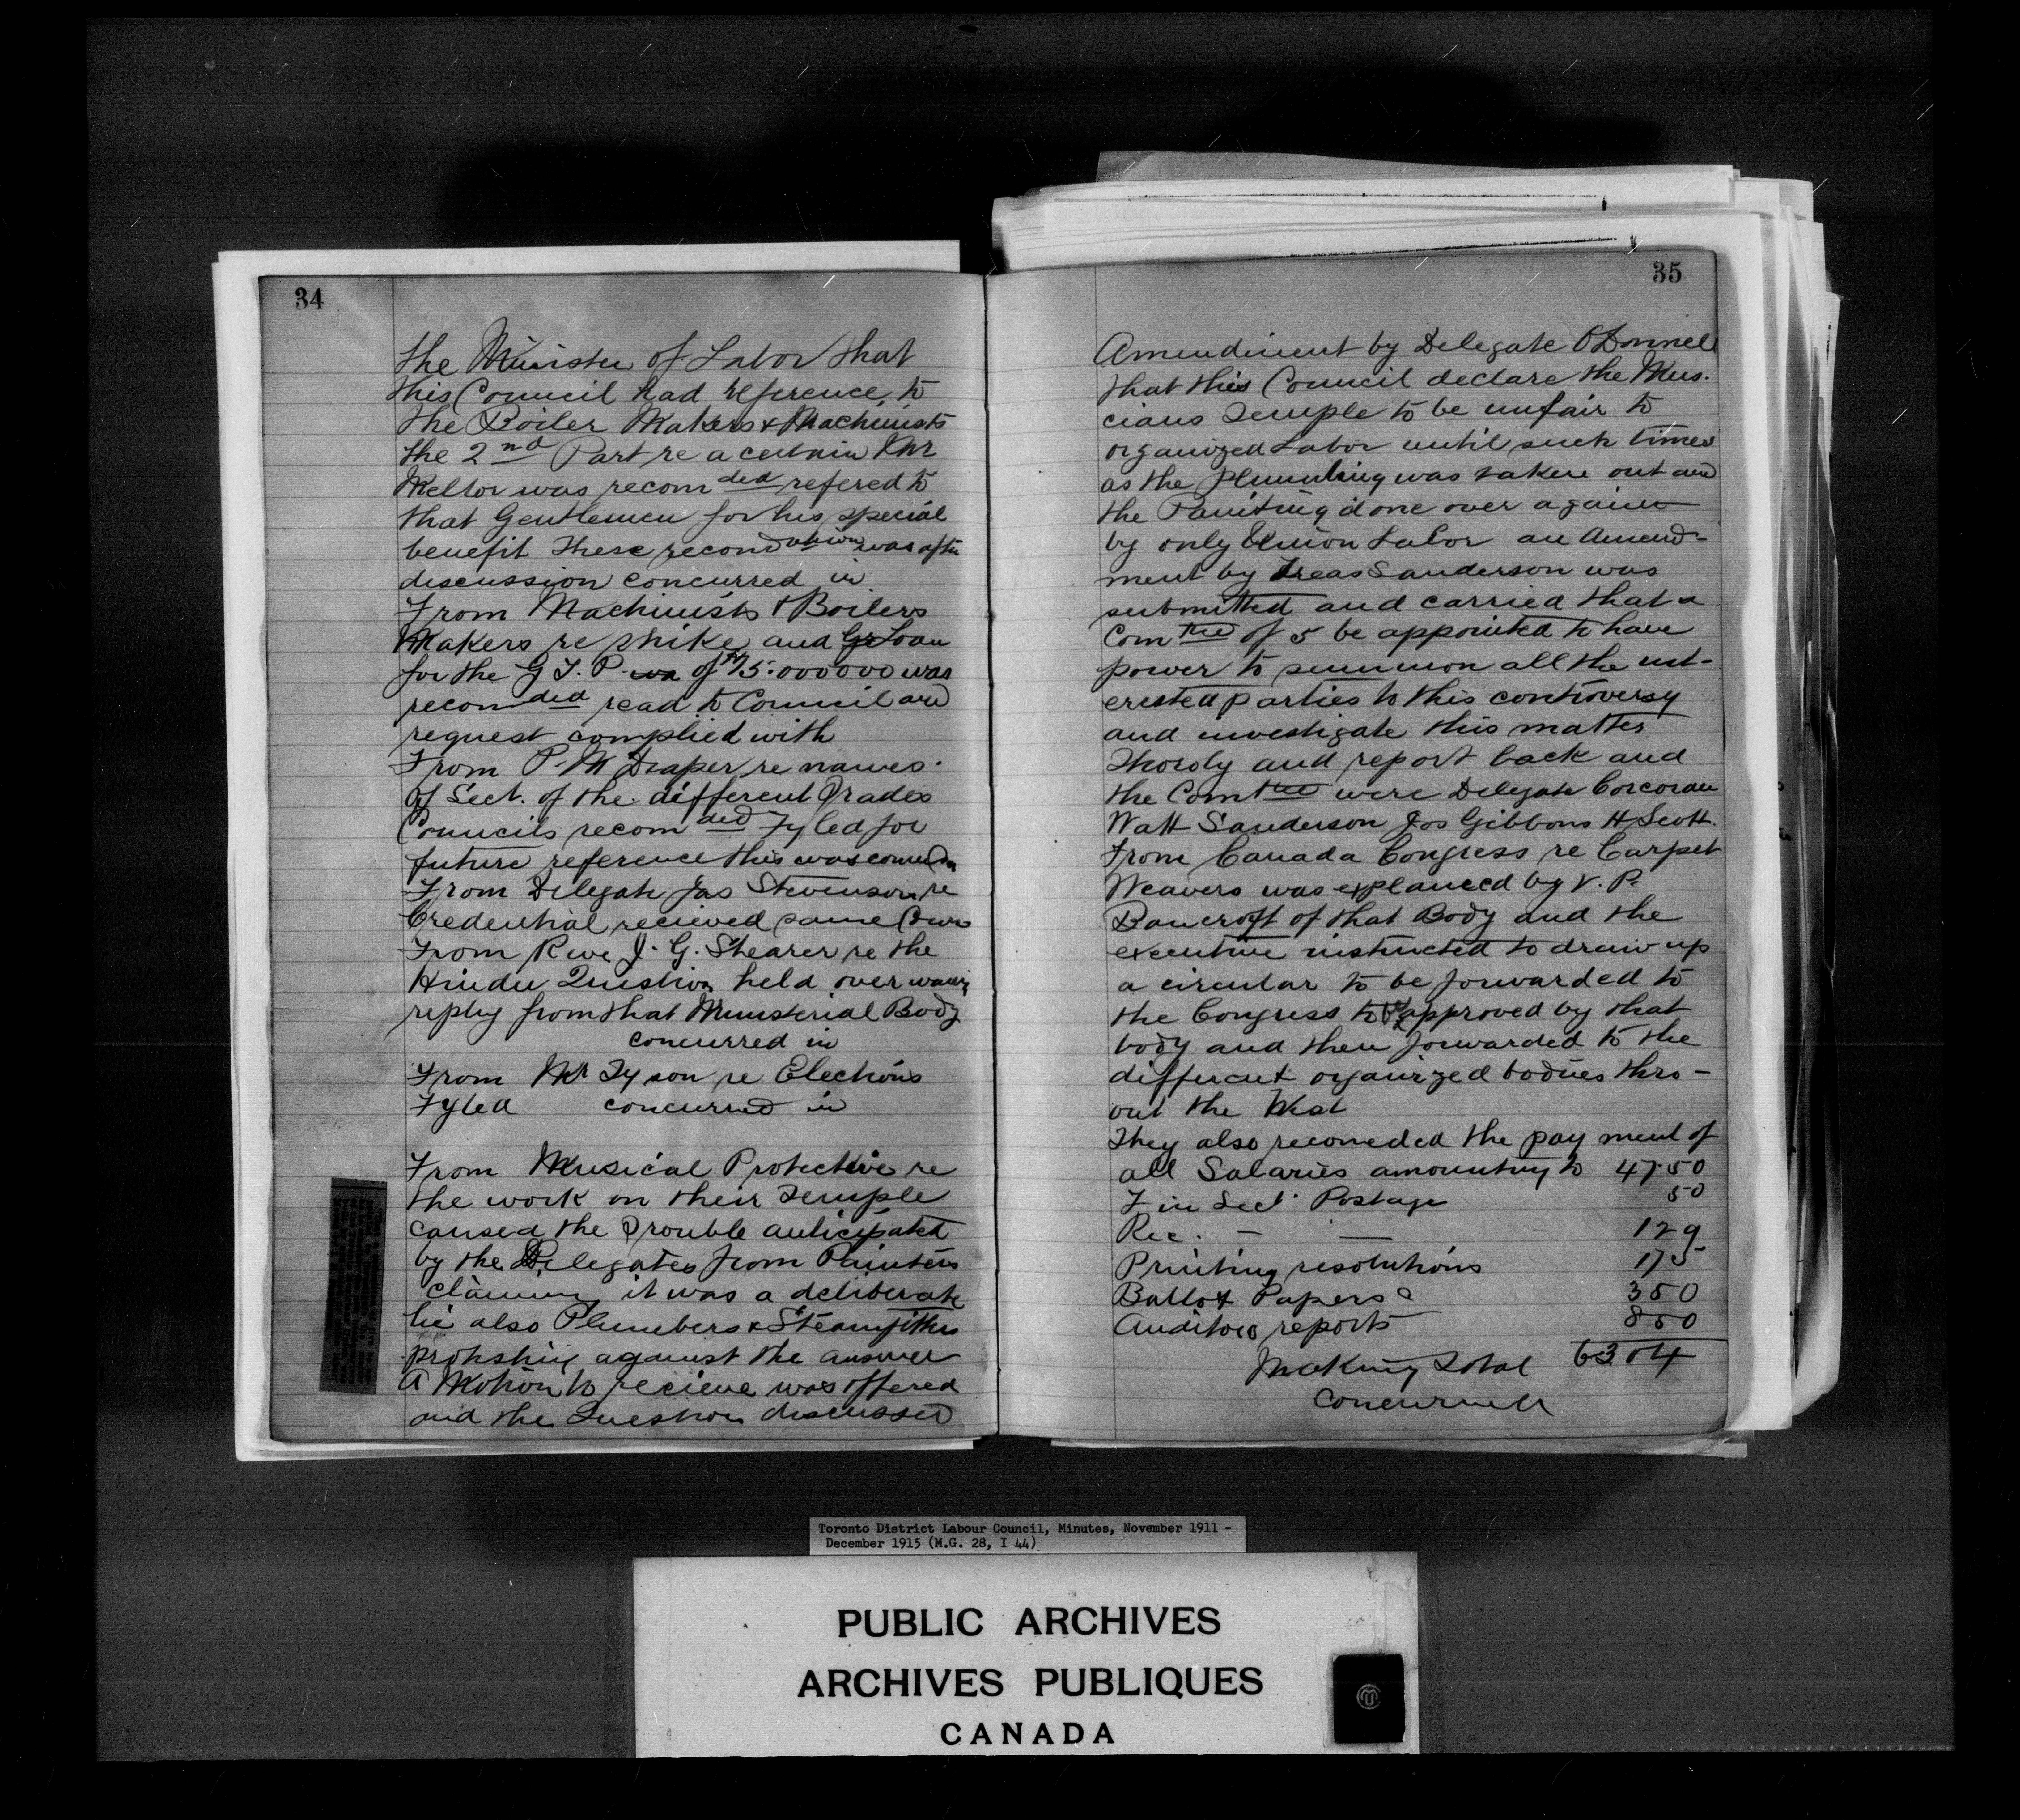 34
the Minister of Labor that
this Council had reference to
the Boiler Makers & Machinists
the 2nd Part re a certain Mr
Meltor was recomded refered to
that Gentlemen for his special
benefit These recondation was after
discussion concurred in
From Machinists & Boilers
Makers re strike and Gr Loan
for the G T. P. wa of $15.000000 was
recomded read to Council and
request complied with
From P. M Draper re names.
of Sect. of the different Trades
Councils recomded Fyled for
future reference this was concur in
From Delegate Jas Stevenson re
Credential recieved same Concur
From Rev J. G. Shearer re the
Hindu Question held over waiting
reply from that Ministerial Body
concurred in
From Mr Tyson re Elections
Fyled concurred in
From Musical Protective re
the work on their Temple
caused the Trouble anticipated
by the Delegates from Painters
claiming it was a deliberate
lie also Plumbers & Steamfitters
protesting against the answer
A Motion to recieve was offered
and the Question discussed
35
Amendment by Delegate O'Donnell
that this Council declare the Mus.
cians Temple to be unfair to
organized Labor until such times
as the Plumbing was taken out and
the Painting done over again
by only Union Labor an Amend-
ment by Treas Sanderson was
submitted and carried that a
Comttee of 5 be appointed to have
power to summon all the int-
erested parties to this controversy
and investigate this matter
Thoroly and report back and
the Comttee were Delegate Corcoran
Watt Sanderson Jos Gibbons H Scott.
From Canada Congress re Carpet
Weavers was explained by V. P.
Bancroft of that Body and the
executive instructed to draw up
a circular to be forwarded to
the Congress to be approved by that
body and then forwarded to the
different organized bodies thro-
out the West
They also recomeded the pay ment of
all Salaries amounting to 47.50
Fin Sect. Postage 50
Rec. — — 129
Printing resolutions 175
Ballot Papers 350
Auditors reports 850
Making Total 6304
Concurred
Toronto District Labour Council, Minutes, November 1911 -
December 1915 (M.G. 28, I 44)
PUBLIC ARCHIVES
ARCHIVES PUBLIQUES
CANADA